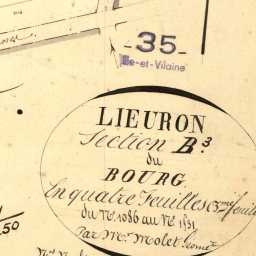 -35-
Ille-et-Vilaine
LIEURON
Section B.3
du
BOURG
En quatre Feuilles (3me feuille
du No. 1086 au No. 1531
Par Mr. Molet Géomre
50